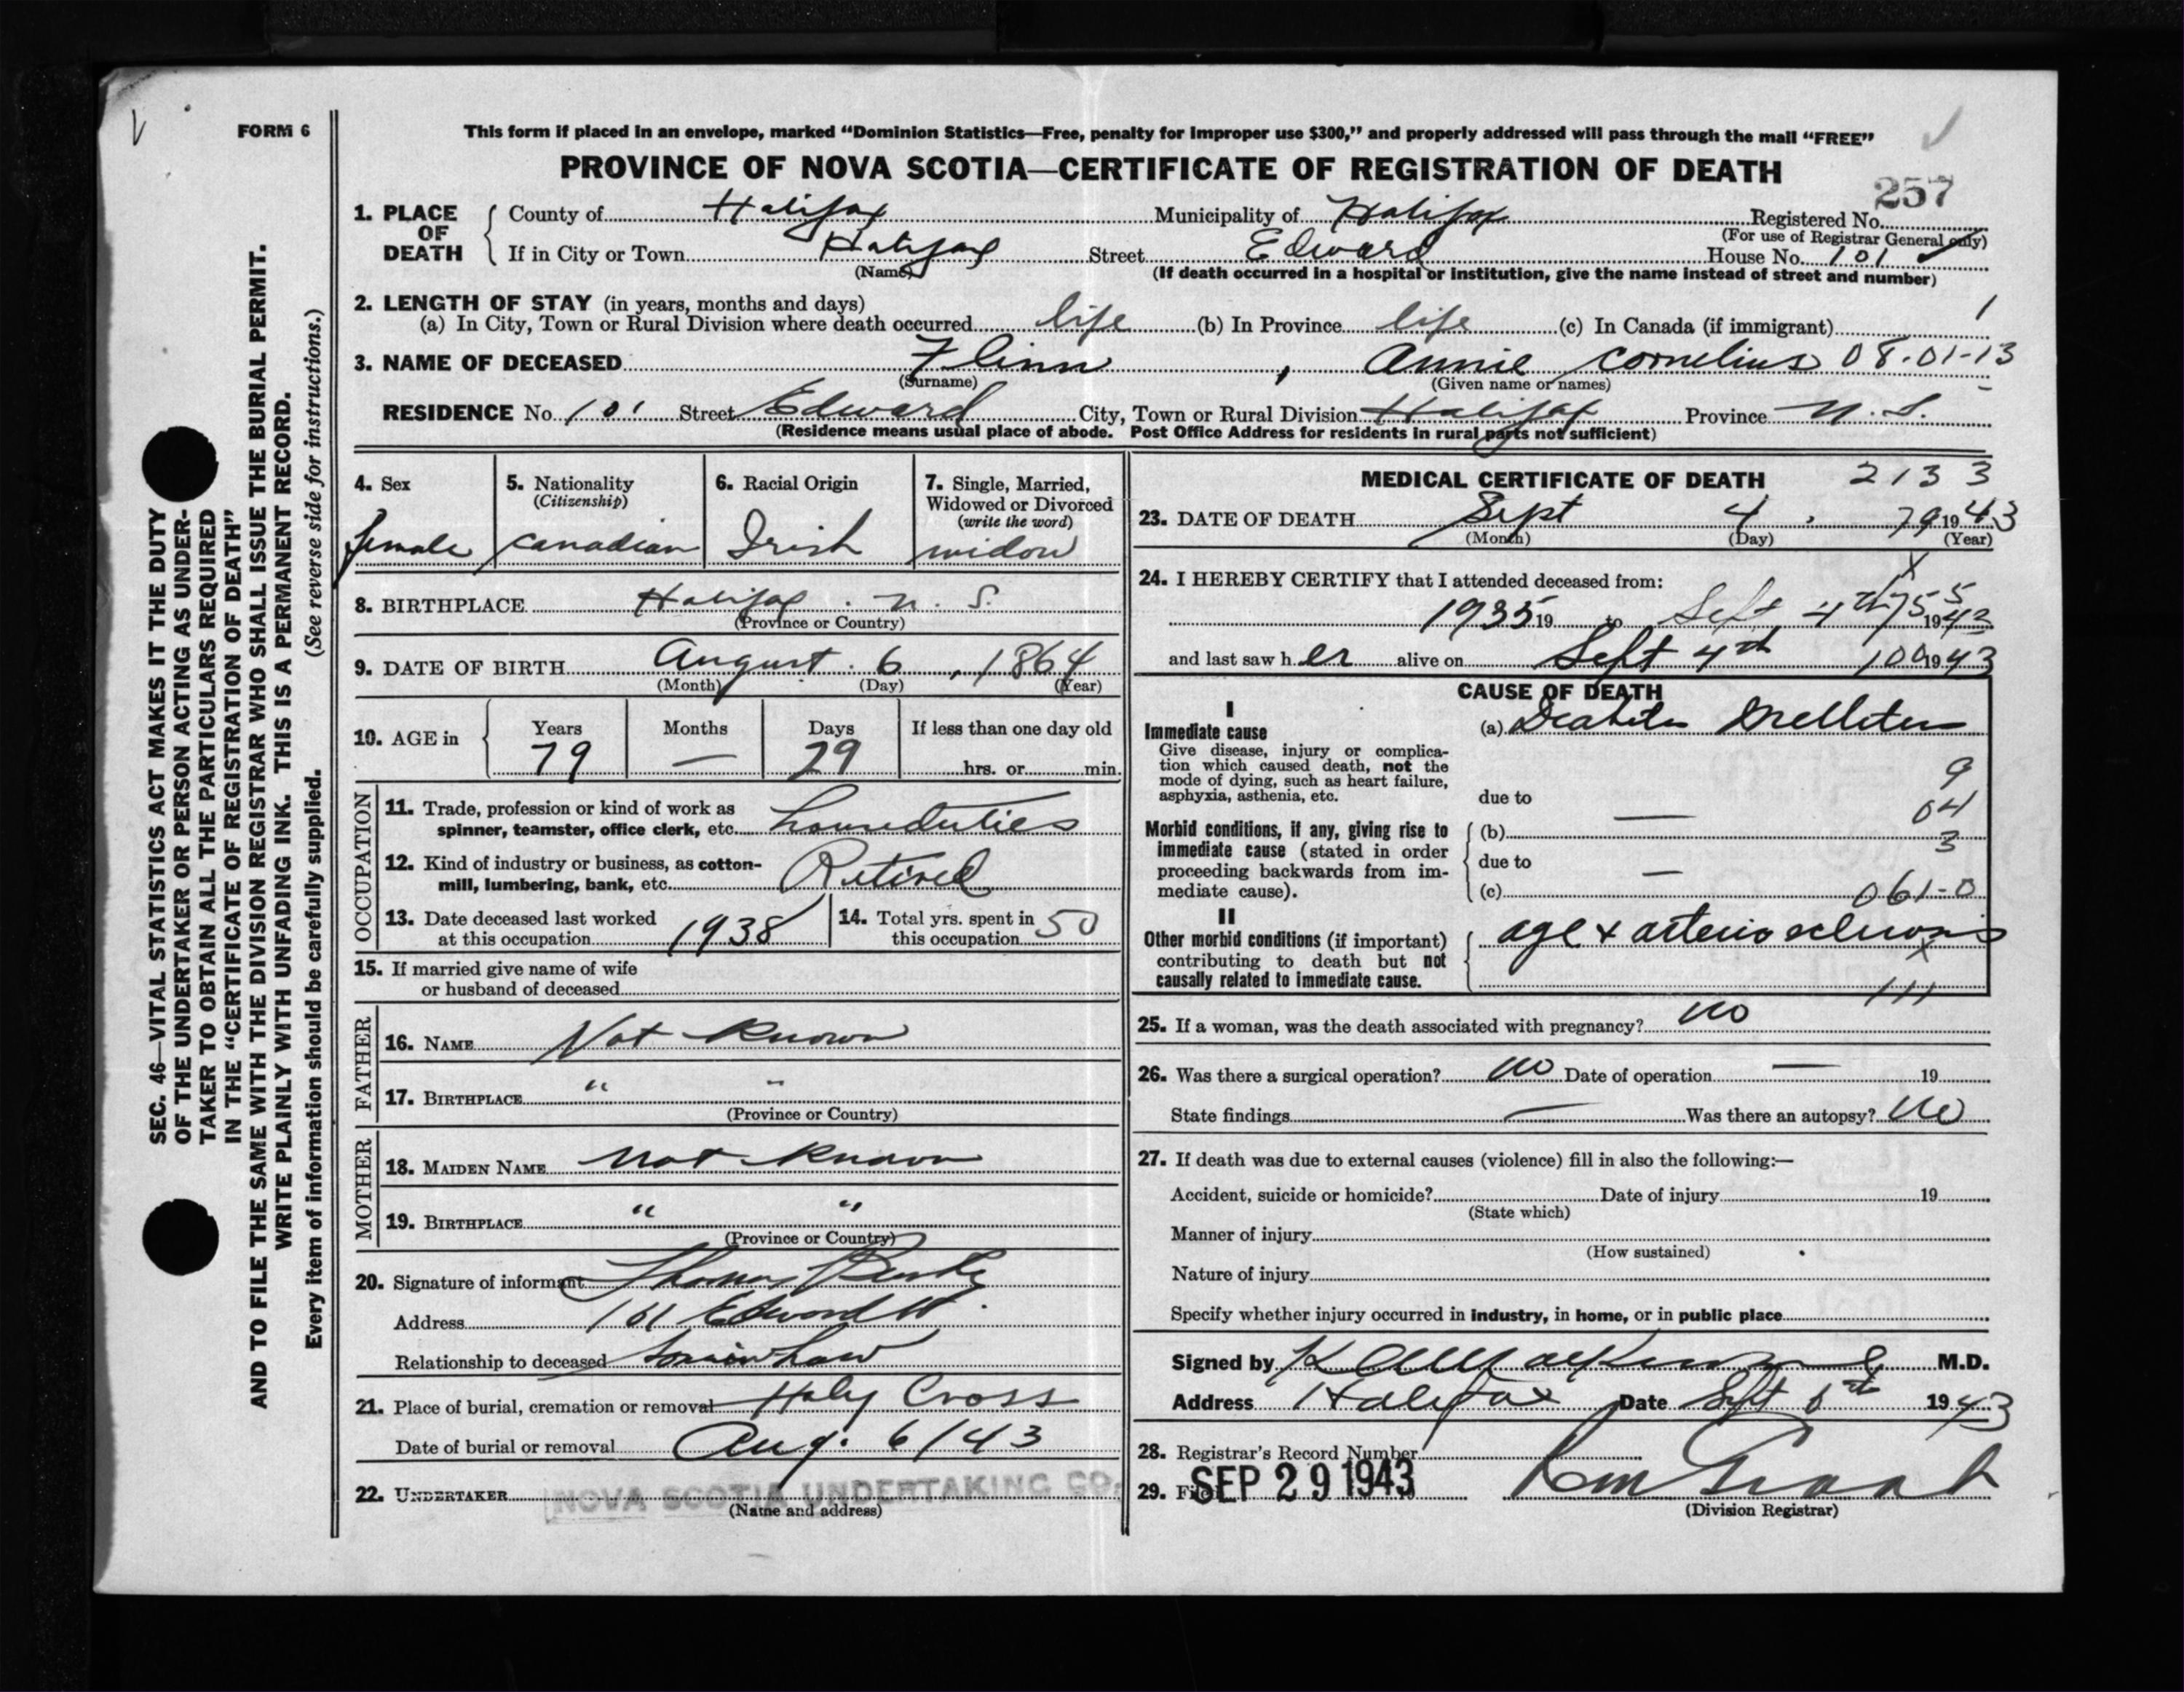 FORM 6
This form if placed in an envelope, marked “Dominion Statistics—Free, penalty for improper use $300,” and properly addressed will pass through the mail “FREE”
PROVINCE OF NOVA SCOTIA—CERTIFICATE OF REGISTRATION OF DEATH
257
1. PLACE OF DEATH { County of Halifax Municipality of Halifax Registered No.
(For use of Registrar General only)
If in City or Town Halifax Street Edward House No. 101
(Name) (If death occurred in a hospital or institution, give the name instead of street and number)
2. LENGTH OF STAY (in years, months and days)
(a) In City, Town or Rural Division where death occurred life (b) In Province life (c) In Canada (if immigrant) 1
3. NAME OF DECEASED Flinn, Annie Cornelius 08-01-13
(Surname) (Given name or names)
RESIDENCE No. 101 Street Edward City, Town or Rural Division Halifax Province N.S.
(Residence means usual place of abode. Post Office Address for residents in rural parts not sufficient)
4. Sex female
5. Nationality (Citizenship) Canadian
6. Racial Origin Irish
7. Single, Married, Widowed or Divorced (write the word) widow
8. BIRTHPLACE Halifax. N. S.
(Province or Country)
9. DATE OF BIRTH August. 6, 1864
(Month) (Day) (Year)
10. AGE in { Years 79 Months — Days 29 If less than one day old hrs. or min.
OCCUPATION
11. Trade, profession or kind of work as
spinner, teamster, office clerk, etc. houseduties
12. Kind of industry or business, as cotton-
mill, lumbering, bank, etc. Retired
13. Date deceased last worked
at this occupation 1938
14. Total yrs. spent in
this occupation 50
15. If married give name of wife
or husband of deceased
FATHER
16. NAME Not Known
17. BIRTHPLACE " "
(Province or Country)
MOTHER
18. MAIDEN NAME not Known
19. BIRTHPLACE " "
(Province or Country)
20. Signature of informant Thomas
Address 101 Edward St.
Relationship to deceased Son in Law
21. Place of burial, cremation or removal Holy Cross
Date of burial or removal Aug. 6/43
22. UNDERTAKER NOVA SCOTIA UNDERTAKING CO.
(Name and address)
MEDICAL CERTIFICATE OF DEATH 2133
23. DATE OF DEATH Sept 4, 79 1943
(Month) (Day) (Year)
24. I HEREBY CERTIFY that I attended deceased from:
1935 19 to Sept 4th 1943
and last saw her alive on Sept 4th 100 1943
CAUSE OF DEATH
I
Immediate cause
Give disease, injury or complica-
tion which caused death, not the
mode of dying, such as heart failure,
asphyxia, asthenia, etc.
(a) Diabetes Mellitus
9
due to
04
Morbid conditions, if any, giving rise to
immediate cause (stated in order
proceeding backwards from im-
mediate cause).
(b) —
3
due to
(c) — 061-0
II
Other morbid conditions (if important)
contributing to death but not
causally related to immediate cause.
age + arterio sclerosis
x
111
25. If a woman, was the death associated with pregnancy? no
26. Was there a surgical operation? no Date of operation — 19
State findings — Was there an autopsy? no
27. If death was due to external causes (violence) fill in also the following:—
Accident, suicide or homicide? Date of injury 19
(State which)
Manner of injury
(How sustained)
Nature of injury
Specify whether injury occurred in industry, in home, or in public place
Signed by M.D.
Address Halifax Date Sept 1943
28. Registrar's Record Number
29. SEP 29 1943
(Division Registrar)
SEC. 46—VITAL STATISTICS ACT MAKES IT THE DUTY
OF THE UNDERTAKER OR PERSON ACTING AS UNDER-
TAKER TO OBTAIN ALL THE PARTICULARS REQUIRED
IN THE “CERTIFICATE OF REGISTRATION OF DEATH”
AND TO FILE THE SAME WITH THE DIVISION REGISTRAR WHO SHALL ISSUE THE BURIAL PERMIT.
WRITE PLAINLY WITH UNFADING INK. THIS IS A PERMANENT RECORD.
Every item of information should be carefully supplied. (See reverse side for instructions.)